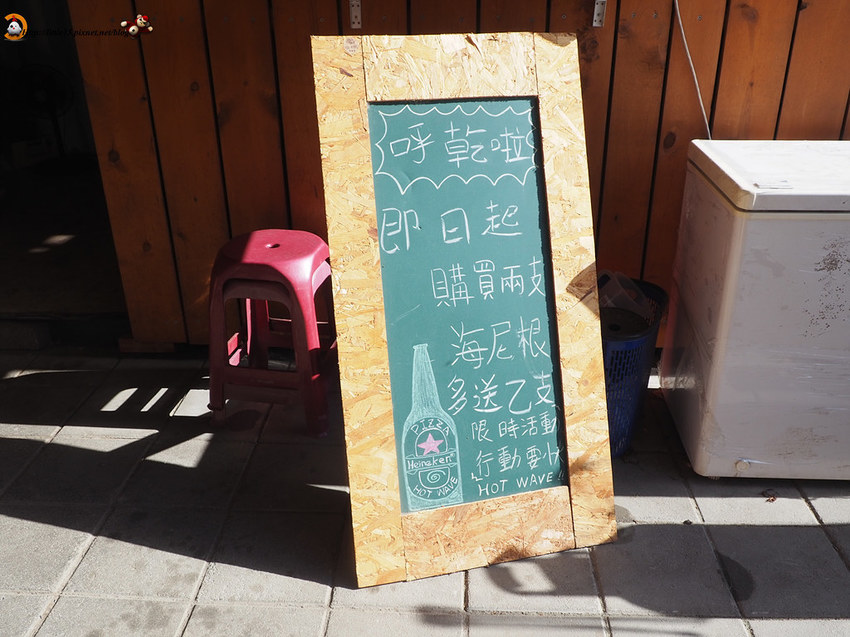 呼乾啦
即日起
購買兩支
海尼根
多送乙支
限時活動
行動要快
HOT WAVE!!
PIZZA
Heineken
HOT WAVE